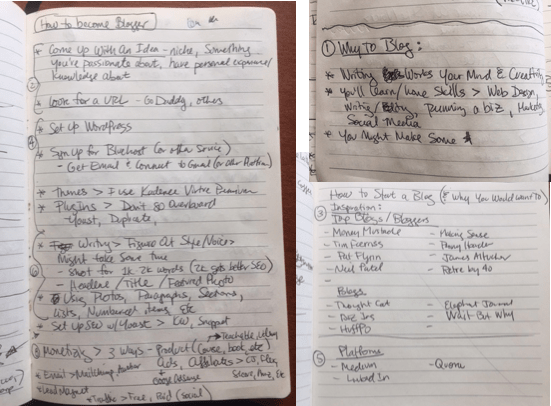 How to become Blogger
* Come Up With An Idea - niche, Something
You're passionate about, have personal experience/
Knowledge about
②
* Look for a URL - GoDaddy, others
* Set up WordPress
④
* Sign up for Bluehost (or other source)
- Get Email & Connect to Gmail (or other Platform)
* Themes > I use Kadence
* Plugins > Don't go Overboard
Yoast, Duplicate,
* Writing > Figure Out Style/Voice >
Might take Some time
⑥
- Shoot for 1k-2k words (2k gets better SEO)
- Headline / Title / Featured Photo
* Use Photos, Paragraphs, Sections,
Lists, Numbered items, Etc
* Set up Seo w/ Yoast > KW, Snippet
Teachable,
Monetize > 3 Ways - Product (Course, book, etc)
Ads, Affiliates > CJ,
* Email > Mailchimp
Google Adsense
* Lead Magnet
* Traffic > Free, Paid (social)
① Why To Blog:
* Writing Works Your Mind & Creativity
* You'll Learn/have Skills > Web Design,
Writing / running a biz,
Social Media
* You Might Make Some $
How to Start a Blog (& Why You Would Want To)
③ Inspiration:
Top Blogs/Bloggers
- Money Mustache
- Making Sense
- Tim Ferriss
- Penny Hoarder
- Pat Flynn
- James Altucher
- Neil Patel
- Retire by 40
Blogs
- Thought Cat
- Elephant Journal
- Wait But Why
- HuffPo
⑤ Platforms
- Medium
- Quora
- Linked In